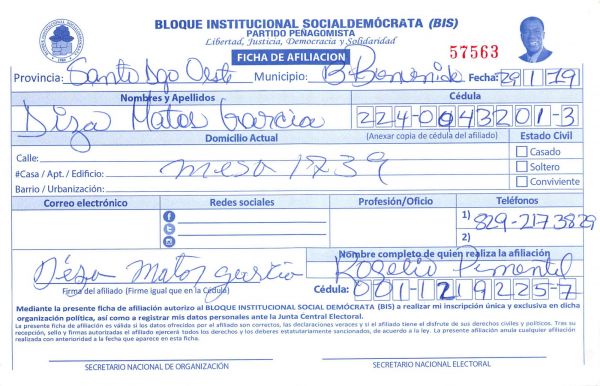 BLOQUE INSTITUCIONAL SOCIALDEMÓCRATA (BIS)
PARTIDO PEÑAGOMISTA
Libertad, Justicia, Democracia y Solidaridad
FICHA DE AFILIACION
57563
Provincia: Santo Dgo Oeste Municipio: B Bienvenido Fecha: 29/1/19
Nombres y Apellidos Cédula
Diza Matos Garcia 224-0043201-3
Domicilio Actual (Anexar copia de cédula del afiliado) Estado Civil
Calle: Casado
#Casa / Apt. / Edificio: mesa 1739 Soltero
Barrio / Urbanización: Conviviente
Correo electrónico Redes sociales Profesión/Oficio Teléfonos
1) 829-217 3829
2)
Nombre completo de quien realiza la afiliación
Diza Matos garcia Rogelio Pimentel
Firma del afiliado (Firme igual que en la Cédula) Cédula: 001-1219225-7
Mediante la presente ficha de afiliación autorizo al BLOQUE INSTITUCIONAL SOCIAL DEMÓCRATA (BIS) a realizar mi inscripción única y exclusiva en dicha
organización política, así como a registrar mis datos personales ante la Junta Central Electoral.
La presente ficha de afiliación es válida si los datos ofrecidos por el afiliado son correctos, las declaraciones veraces y si el afiliado tiene el disfrute de sus derechos civiles y políticos. Tras su
recepción, sello y firmas autorizadas el afiliado ejercerá todos los derechos y los deberes estatutariamente sancionados, de acuerdo a la ley. La presente afiliación anula cualquier afiliación
realizada con anterioridad a la fecha que aparece en esta ficha.
SECRETARIO NACIONAL DE ORGANIZACIÓN SECRETARIO NACIONAL ELECTORAL